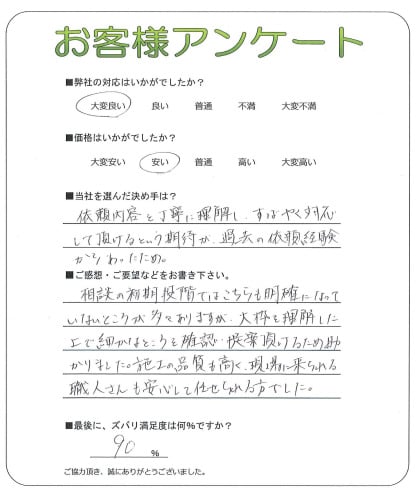 お客様アンケート
■弊社の対応はいかがでしたか？
大変良い 良い 普通 不満 大変不満
■価格はいかがでしたか？
大変安い 安い 普通 高い 大変高い
■当社を選んだ決め手は？
依頼内容を丁寧に理解し、すばやく対応
して頂けるという期待が、過去の依頼経験
からあったため。
■ご感想・ご要望などをお書き下さい。
相談の初期段階ではこちらも明確になって
いないところが多々ありますが、大枠を理解した
上で細かなところを確認・提案頂けるため助
かりました。施工の品質も高く、現場に来られる
職人さんも安心して任せられる方でした。
■最後に、ズバリ満足度は何%ですか？
90 %
ご協力頂き、誠にありがとうございました。